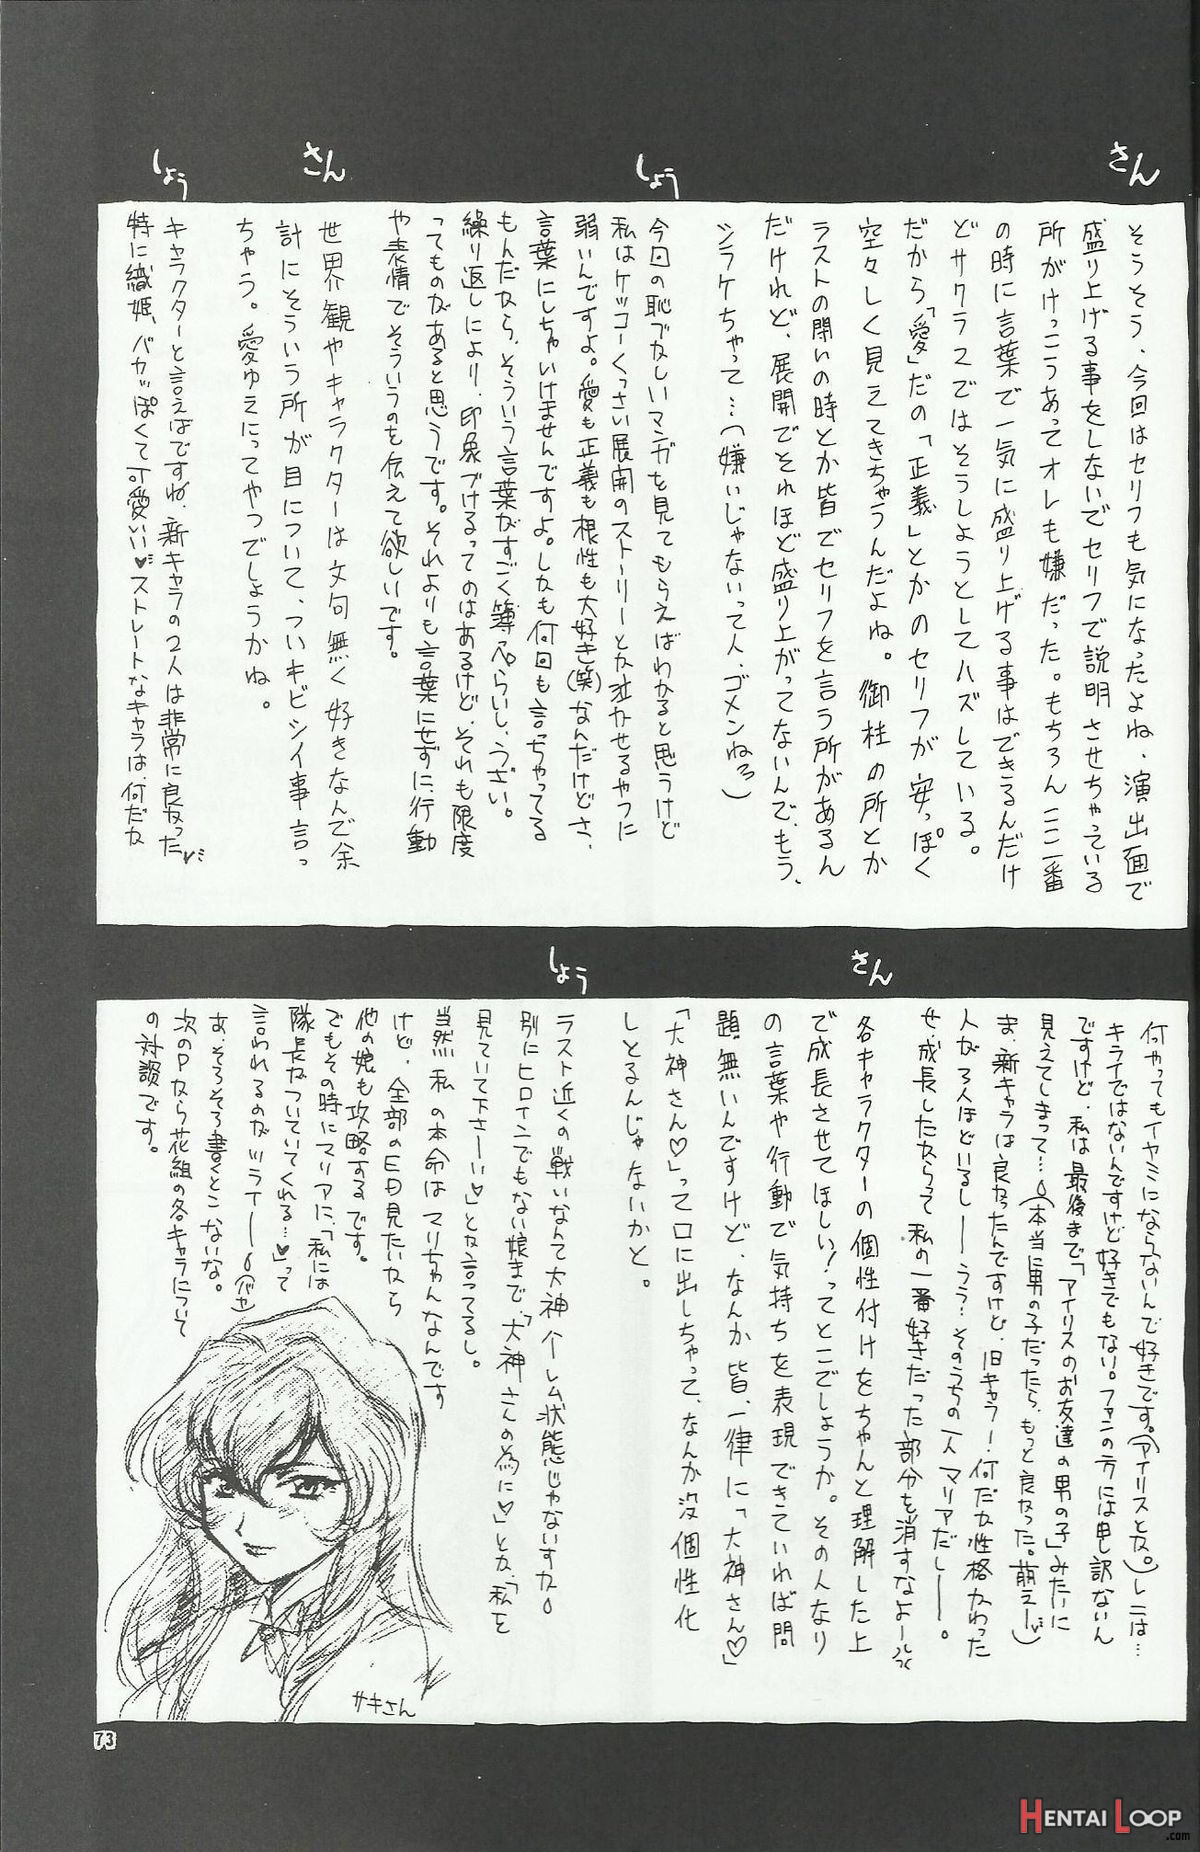 さん
そうそう、今回はセリフも気になったよね、演出面で
盛り上げる事をしないでセリフで説明させちゃっている
所がけっこうあってオレも嫌だった。もちろんここ一番
の時に言葉で一気に盛り上げる事はできるんだけ
どサクラ2ではそうしようとしてハズしている。
だから「愛」だの「正義」とかのセリフが安っぽく
空々しく見えてきちゃうんだよね。御柱の所とか
ラストの闘いの時とか皆でセリフを言う所があるん
だけれど、展開でそれほど盛り上がってないんで、もう、
シラケちゃって…(嫌いじゃないって人、ゴメンねろ)
しょう
今回の恥ずかしいマンガを見てもらえばわかると思うけど
私はケッコーくっさい展開のストーリーとか泣かせるやつに
弱いんですよ。愛も正義も根性も大好き(笑)なんだけどさ、
言葉にしちゃいけませんですよ。しかも何回も言っちゃってる
もんだから、そういう言葉がすごく薄っぺらいし、うざい。
繰り返しにより、印象づけるってのはあるけど、それも限度
ってものがあると思うです。それよりも言葉にせずに、行動
や表情でそういうのを伝えて欲しいです。
さん
世界観やキャラクターは文句無く好きなんで余
計にそういう所が目について、ついキビシイ事言っ
ちゃう。愛ゆえにってやつでしょうかね。
しょう
キャラクターと言えばですね、新キャラの2人は非常に良かった
特に織姫、バカッぽくて可愛い♥ストレートなキャラは、何だか
何やってもイヤミにならないんで好きです。(アイリスとか。)レニは…
キライではないんですけど好きでもない。ファンの方には申し訳ないん
ですけど、私は最後まで「アイリスのお友達の男の子」みたいに
見えてしまって…(本当に男の子だったら、もっと良かった。萌えー)
ま、新キャラは良かったんですけど、旧キャラー・何だか性格かわった
人が3人ほどいるしーーうう…そのうちの一人マリアだしーー。
せ、成長したからって私の一番好きだった部分を消すなよーっ
さん
各キャラクターの個性付けをちゃんと理解した上
で成長させてほしい!ってとこでしょうか。その人なり
の言葉や行動で気持ちを表現できていれば問
題無いんですけど、なんか皆、一律に「大神さん♡」
「大神さん♡」って口に出しちゃって、なんか没個性化
しとるんじゃないかと。
しょう
ラスト近くの戦いなんて大神ハーレム状態じゃないすか
別にヒロインでもない娘まで、「大神さんの為に♡」とか、「私を
見ていて下さーい♡」とか言ってるし。
当然私の本命はマリちゃんなんです
けど、全部のED見たいから
他の娘も攻略するです。
でもその時にマリアに、「私には
隊長がついていてくれる…♥」って
言われるのがツライーー(バカ)
あ、そろそろ書くとこないな。
次のPから花組の各キャラについて
の対談です。
サキさん
73
HENTAI LOOP
.com